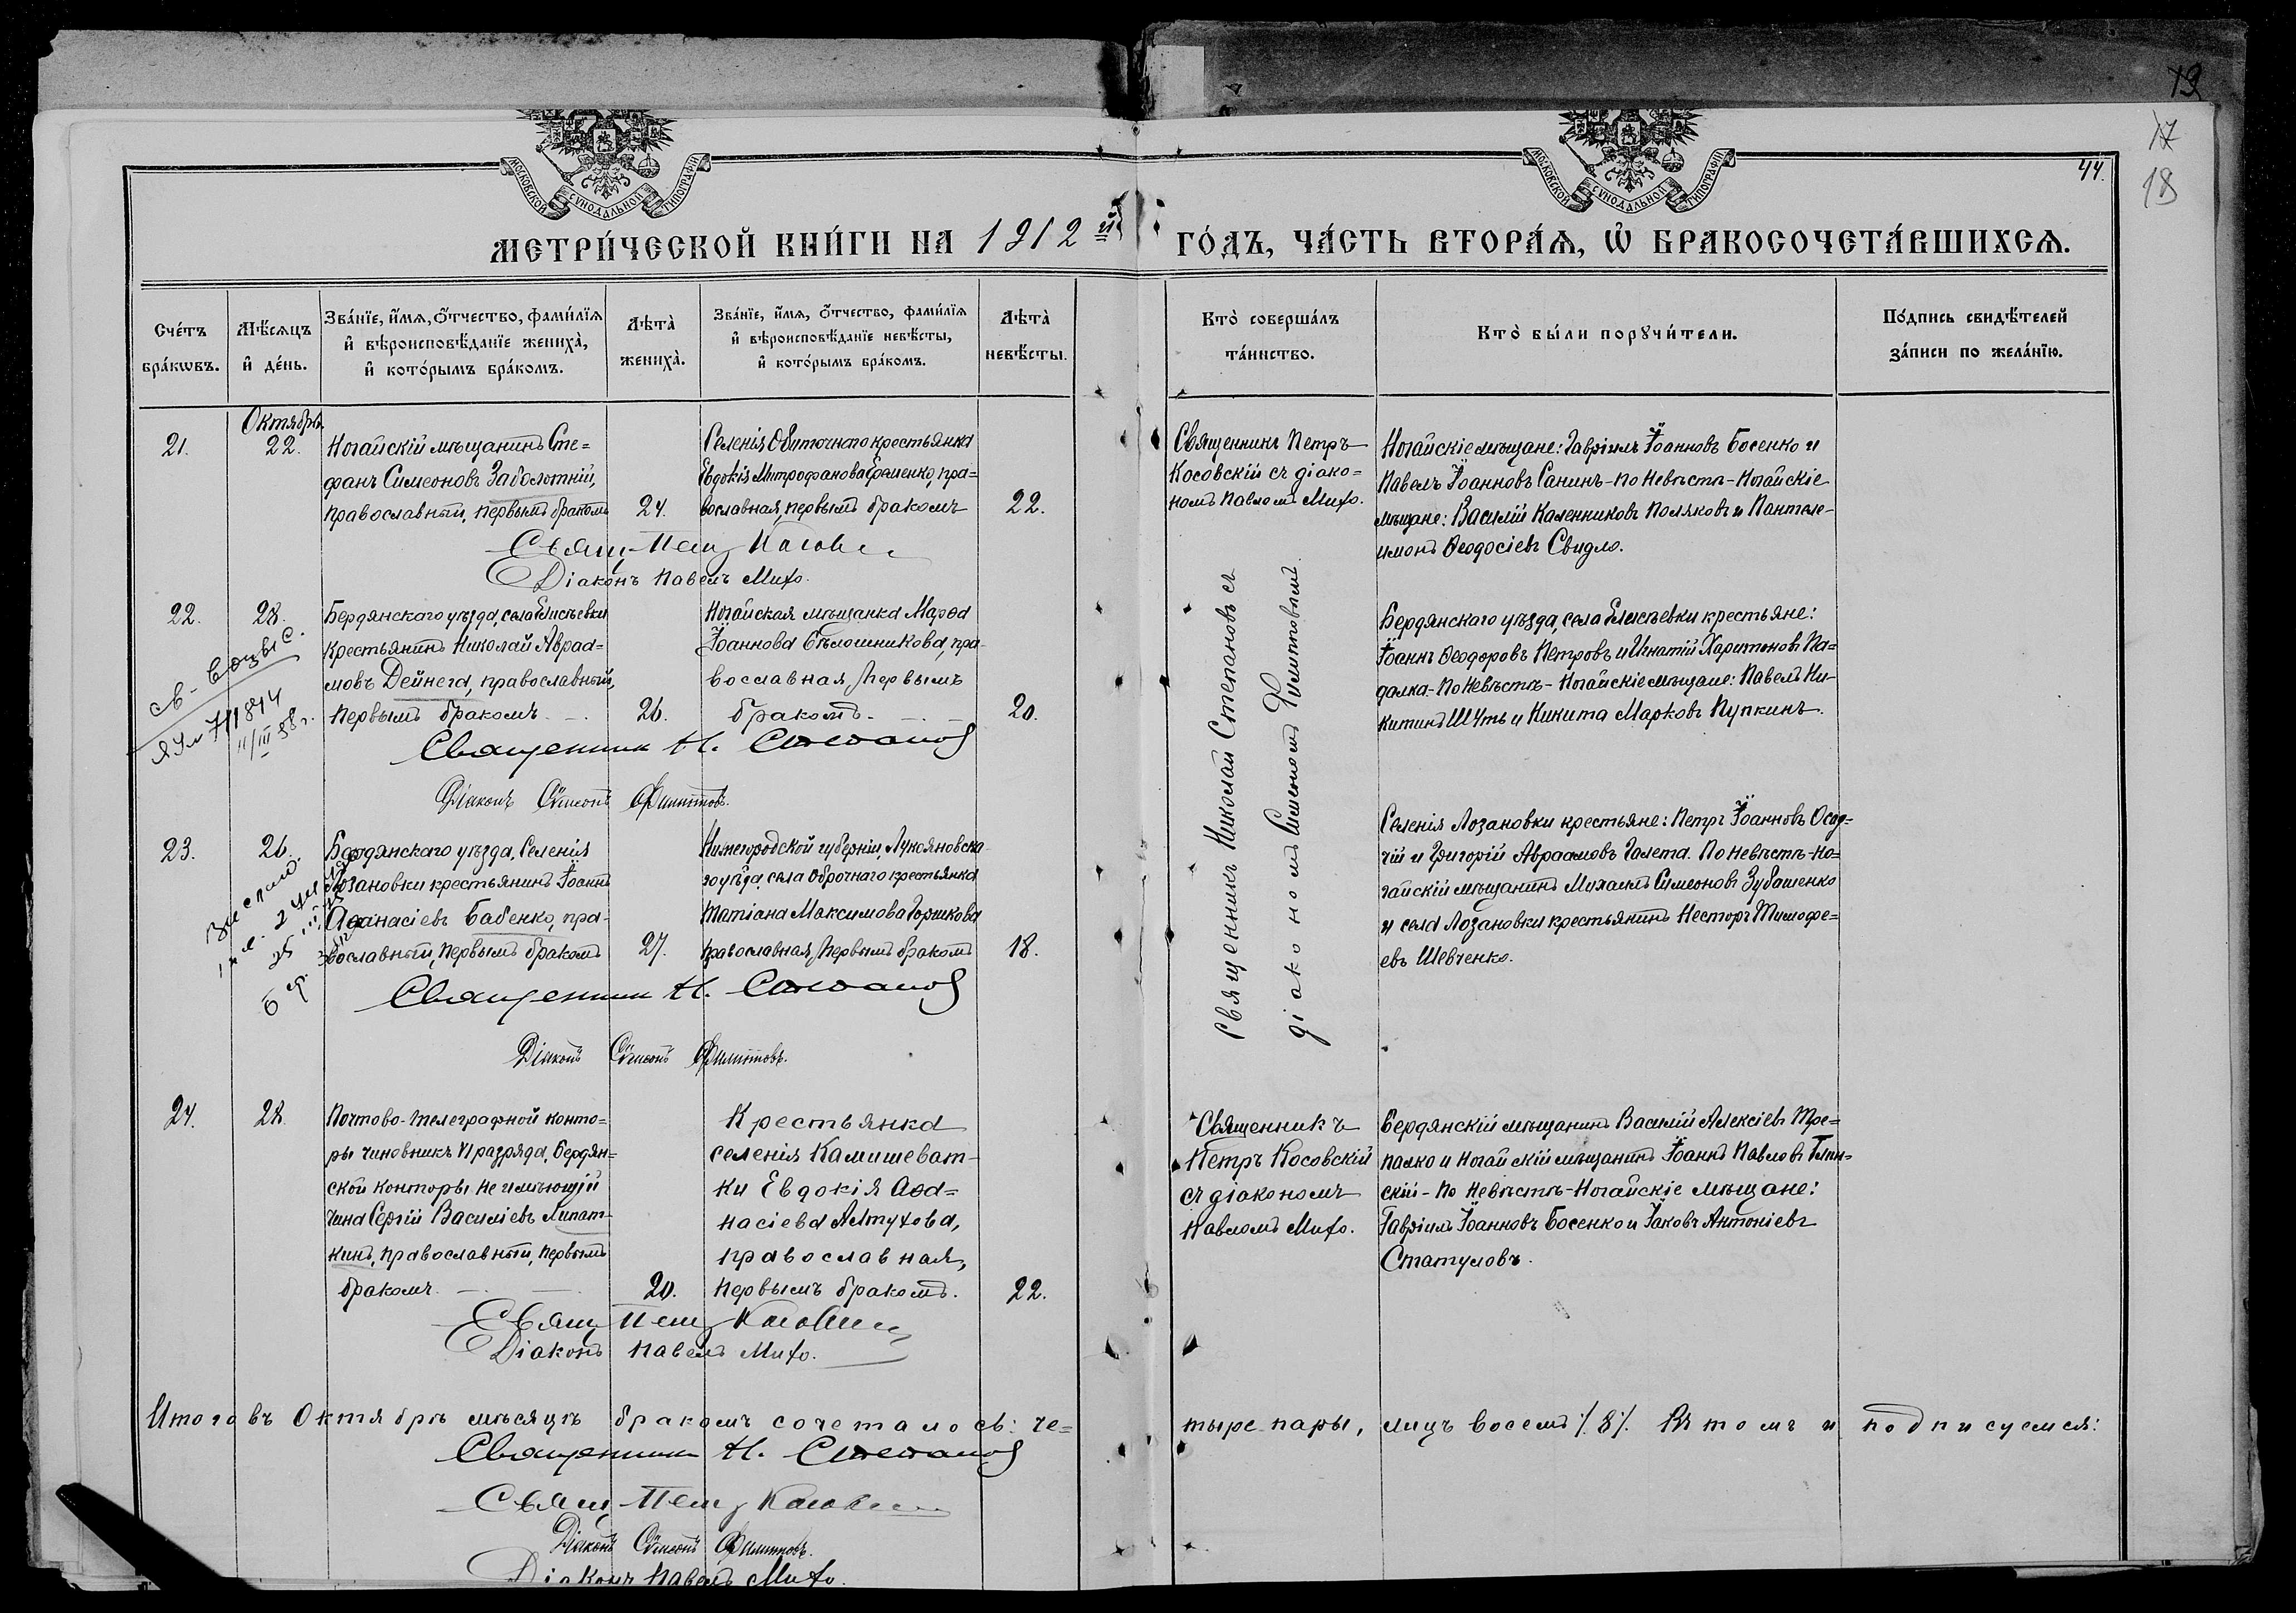 19
17
18
44.
МОСКОВСКОЙ СѴНОДАЛЬНОЙ ТИПОГРАФІИ
МОСКОВСКОЙ СѴНОДАЛЬНОЙ ТИПОГРАФІИ
МЕТРИ́ЧЕСКОЙ КНИ́ГИ НА 1912й ГО́ДЪ, ЧА́СТЬ ВТОРА́Я, Ѽ БРАКОСОЧЕТА́ВШИХСЯ.
Счéтъ бра́кѡвъ.
Мѣ́сяцъ и҆ де́нь.
Зва́нїе, и҆́мя, ѻ҆́тчество, фами́лїя
и҆ вѣроисповѣ́данїе жениха̀,
и҆ кото́рымъ бра́комъ.
Лѣта̀ жениха̀.
Зва́нїе, и҆́мя, ѻ҆́тчество, фами́лїя
и҆ вѣроисповѣ́данїе невѣ́сты,
и҆ кото́рымъ бра́комъ.
Лѣта̀ невѣ́сты.
Кто̀ соверша́лъ
та́инство.
Кто̀ бы́ли порꙋчи́тели.
По́дпись свидѣ́телей
за́писи по жела́нїю.
Октябрь
21.
22.
Ногайскій мѣщанинъ Сте=
фанъ Симеоновъ Заболотній,
православный, первымъ бракомъ
24.
Селенія Обиточнаго крестьянка
Евдокія Митрофанова Ефименко, пра=
вославная, первымъ бракомъ
22.
Священникъ Петръ
Косовскій съ діако=
номъ Павломъ Михо.
Ногайскіе мѣщане: Гавріилъ Іоанновъ Босенко и
Павелъ Іоанновъ Санинъ - По невѣстѣ - Ногайскіе
мѣщане: Василій Каленниковъ Поляковъ и Пантеле-
имонъ Ѳеодосіевъ Свидло.
Свящ. Петр Косовскій
Діаконъ Павелъ Михо.
22.
28.
Бердянскаго уѣзда, села Елисѣевки
крестьянинъ Николай Авраа=
мовъ Дейнега, православный,
первымъ бракомъ
26.
Ногайская мѣщанка Марѳа
Іоаннова Бѣлошникова, пра-
вославная, первымъ
бракомъ.
20.
Священникъ Николай Степановъ съ
діакономъ Симеономъ Филипповымъ
Бердянскаго уѣзда, села Елисѣевки крестьяне:
Іоаннъ Ѳеодоровъ Петровъ и Игнатій Харитоновъ Па=
далка. - По невѣстѣ - Ногайскіе мѣщане: Павелъ Ни-
китинъ Шуть и Никита Марковъ Пупкинъ.
Священник Н. Степановъ
Діаконъ Симеонъ Филипповъ.
23.
26.
Бердянскаго уѣзда, Селенія
Лозановки крестьянинъ Іоаннъ
Аѳанасіевъ Бабенко, пра-
вославный, первымъ бракомъ
27.
Нижегородской губерніи, Лукояновска-
го уѣзда, села Оброчнаго крестьянка
Татіана Максимова Горшкова
православная, первымъ бракомъ
18.
Селенія Лозановки крестьяне: Петръ Іоанновъ Осад-
чій и Григорій Авраамовъ Галета. По невѣстѣ - Но-
гайскій мѣщанинъ Михаилъ Симеоновъ Зубашенко
и села Лозановки крестьянинъ Несторъ Тимофе-
евъ Шевченко.
Священник Н. Степановъ
Діаконъ Симеонъ Филипповъ.
24.
28.
Почтово-телеграфной конто=
ры чиновникъ VI разряда, Бердян=
ской конторы не имѣющій
чина Сергій Василіевъ Липат-
кинъ, православный, первымъ
бракомъ.
20.
Крестьянка
селенія Камишеват-
ки Евдокія Аѳа=
насіева Алтухова,
православная,
первымъ бракомъ.
22.
Священникъ
Петръ Косовскій
съ діакономъ
Павломъ Михо.
Бердянскій мѣщанинъ Василій Алексіевъ Тре=
палко и Ногайскій мѣщанинъ Іоаннъ Павловъ Глин-
скій - По невѣстѣ - Ногайскіе мѣщане:
Гавріилъ Іоанновъ Босенко и Іаковъ Антоніевъ
Статуловъ.
Свящ. Петр Косовскій
Діаконъ Павелъ Михо.
Итого въ Октябрѣ мѣсяцѣ бракомъ сочеталось: че=
тыре пары, лицъ восемь /.8/. Въ томъ и подписуемся:
Священник Н. Степановъ
Свящ. Петр Косовскій
Діаконъ Симеонъ Филипповъ.
Діаконъ Павелъ Михо.